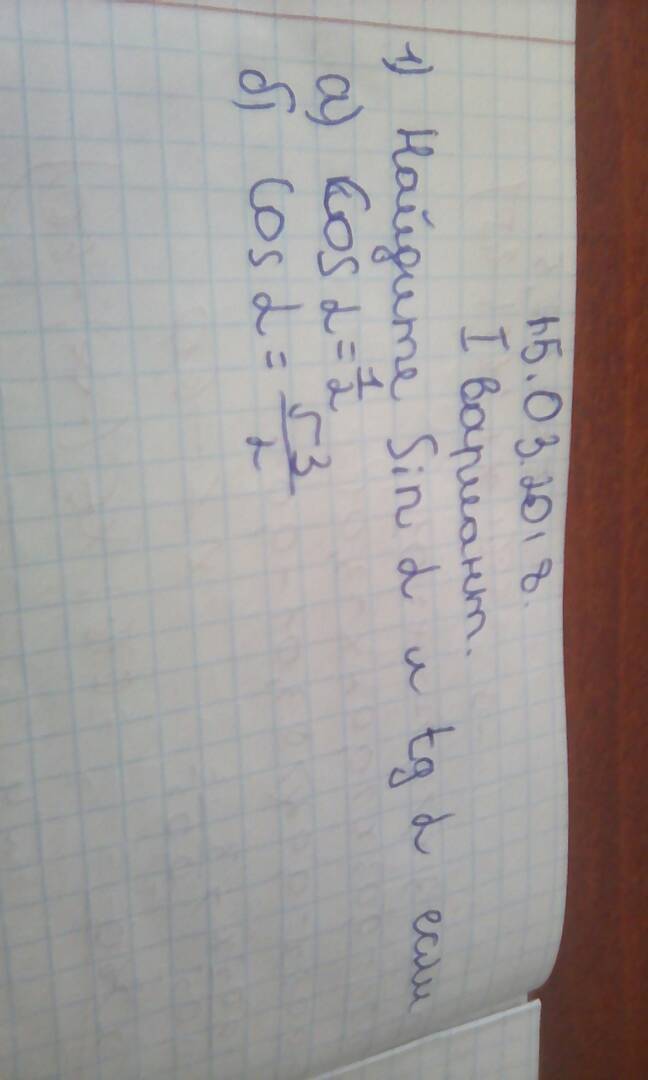 15.03.2018.
I вариант.
1) Найдите Sin α и tg α если
а) Cos α = 1/2
б) Cos α = √3/2